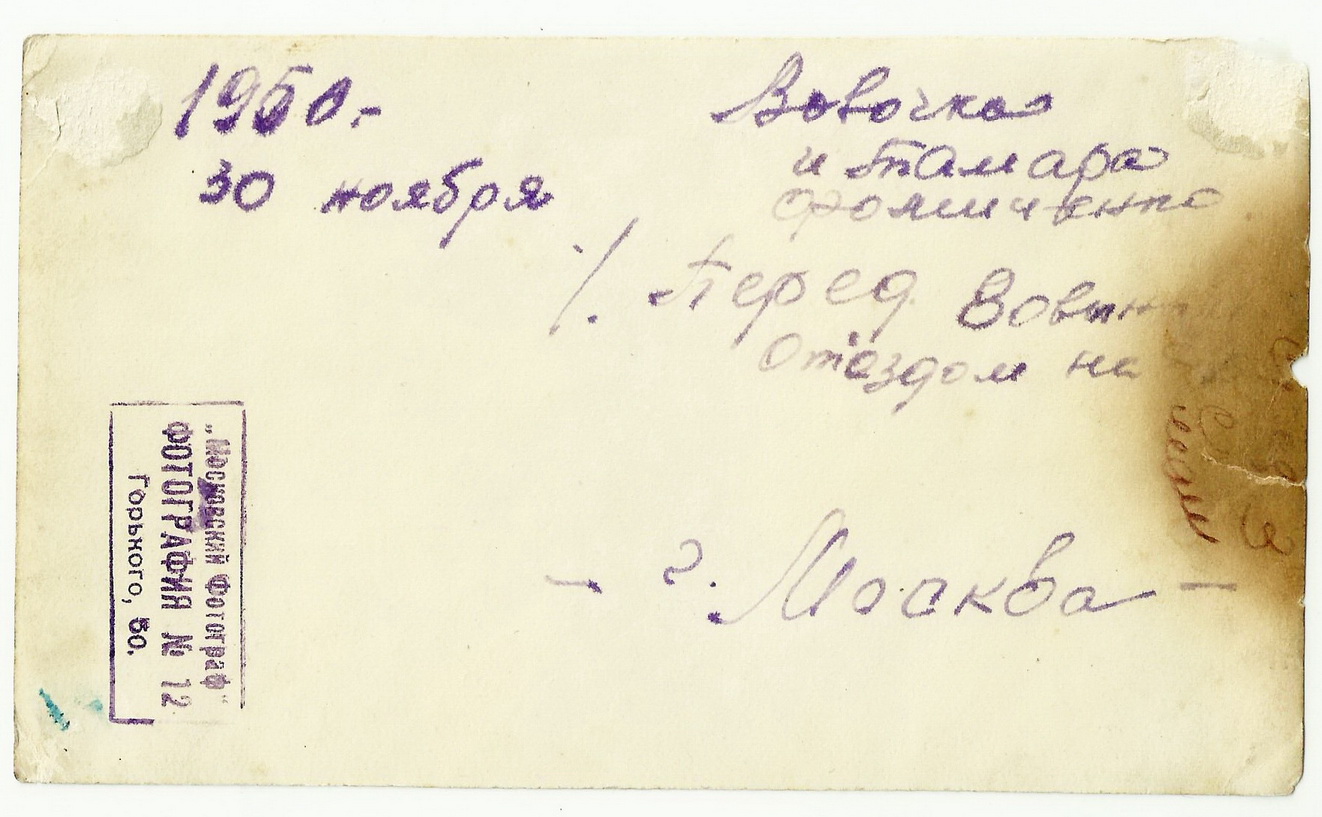 1950.-
30 ноября
Вовочка
и Тамара
Фомниченко
/. Перед Вовиным
отъездом на
- г. Москва -
„Московский Фотограф"
ФОТОГРАФИЯ № 12
Горького, 50.